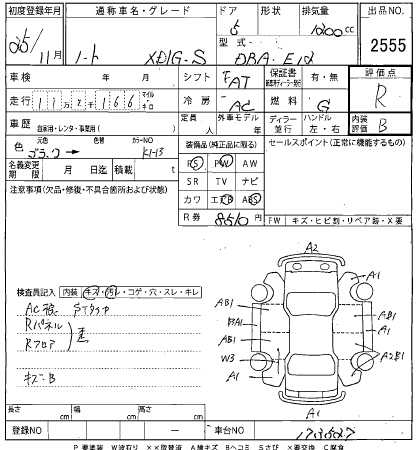 初度登録年月 通称車名・グレード ドア 形状 排気量 出品NO.
25/11月 ノート XDIG-S 5 1200cc
型式 DBA-E12 2555
車検 年 月 シフト FAT 保証書 有・無 評価点
走行 マイル キロ 冷房 AC 燃料 G R
車歴 自家用・レンタ・事業用( ) 定員 人 外車モデル 年 ディーラー 並行 ハンドル 左・右 内装評価 B
色 元色 色替 カラーNO 装備品(純正品に限る) セールスポイント(正常に機能するもの)
K1-13
PS PW AW
名義変更期限 月 日迄 積載 t SR TV ナビ
注意事項(欠品・修復・不具合箇所および状態) カワ エアB ABS
R券 8510円
FW キズ・ヒビ割・リペア跡・X要
A2
A1
AB1 AB1
A1
AB1
W3 A2B1
A1 A1
A1
検査員記入 内装 キズ・汚レ・コゲ・穴・スレ・キレ
Rパネル
Rフロア
キズ・B
長さ cm 幅 cm 高さ cm
登録NO - 車台NO
P要塗装 W波有り ××取替済 A線キズ Bヘコミ Sさび ×要交換 C腐食